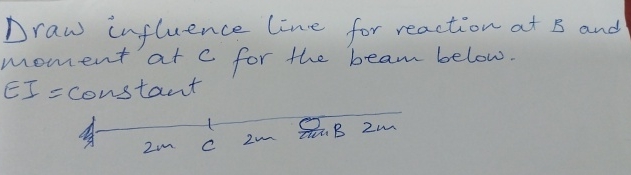 Draw influence line for reaction at B and
moment at C for the beam below.
EI = constant
2m C 2m B 2m